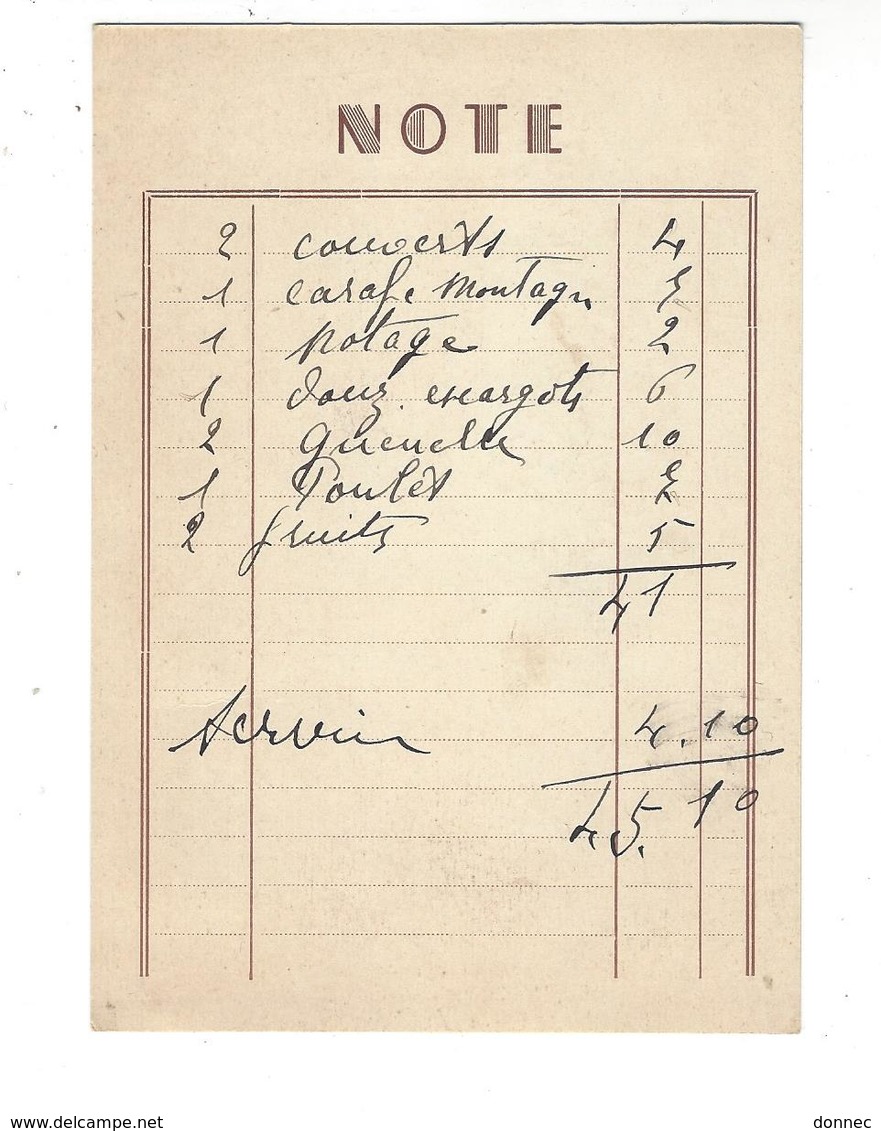 NOTE
2 couverts 4
1 carafe Montagn 7
1 potage 2
1 douz. escargots 6
2 quenelle 10
1 Poulet 7
2 fruits 5
41
Service 4.10
45.10
www.delcampe.net
donnec